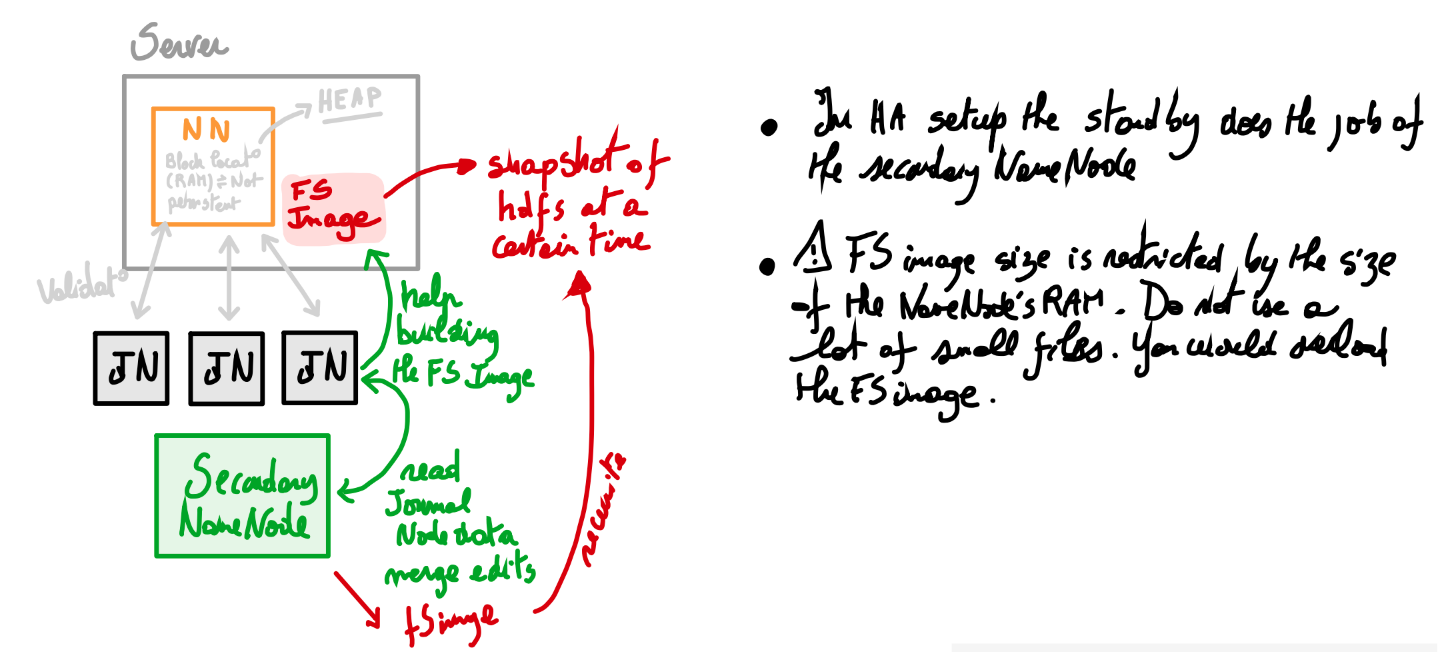 Server
HEAP
NN
Block locat°
(RAM) ≠ Not
persistent
FS
Image
snapshot of
hdfs at a
certain time
Validat°
JN
JN
JN
help
building
the FS Image
Secondary
NameNode
read
Journal
Node data
merge edits
rewrite
fSimage
• In HA setup the standby does the job of
the secondary NameNode
• ⚠ FS image size is restricted by the size
of the NameNode's RAM. Do not use a
lot of small files. You would overload
the FS image.